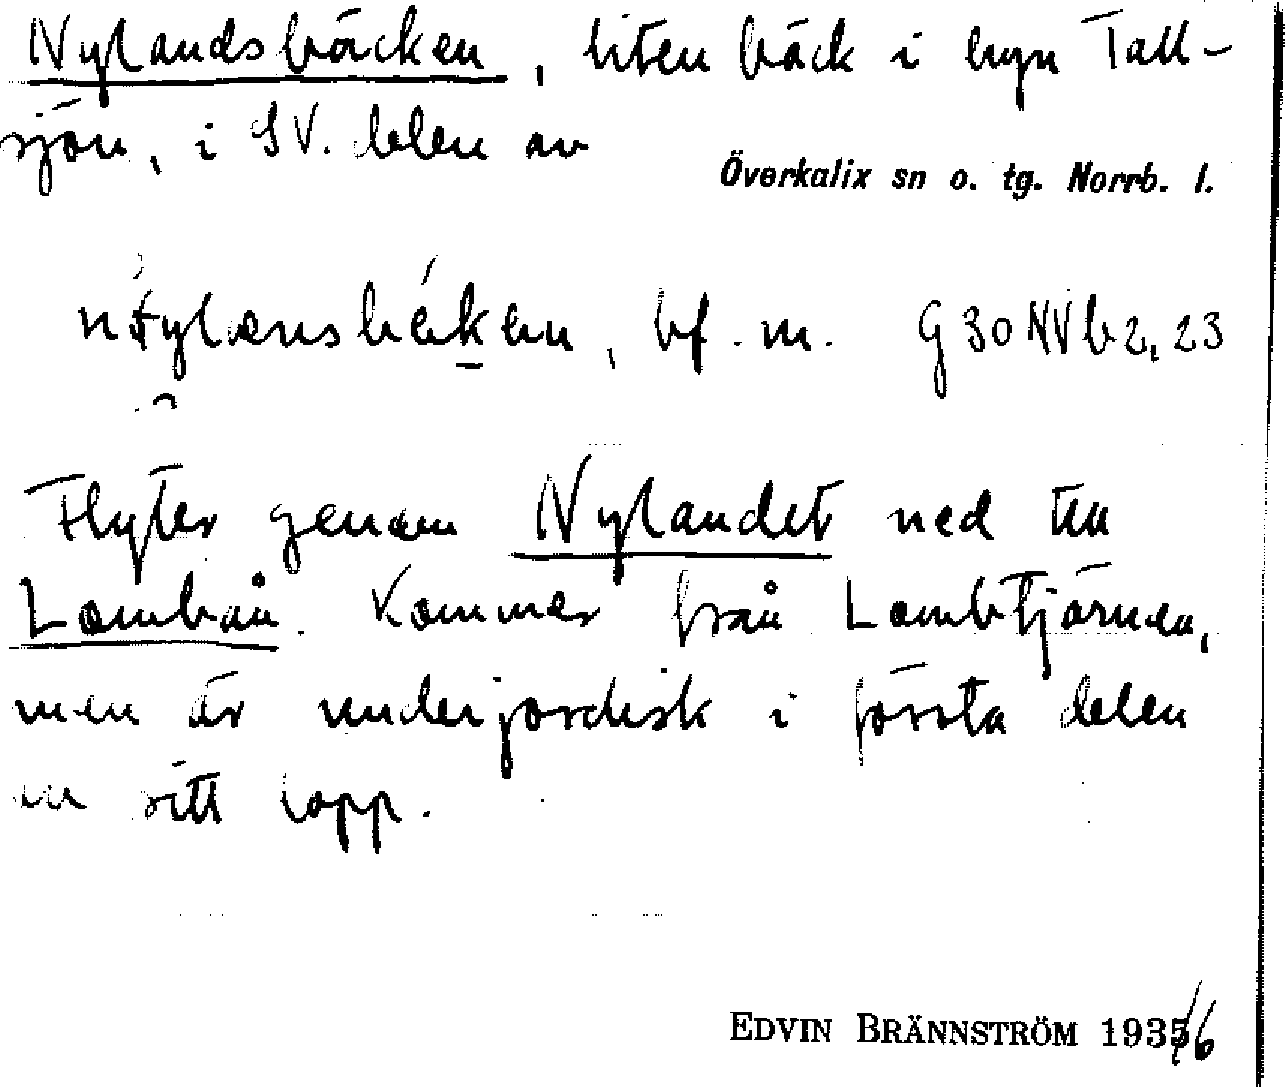 Nylandsbäcken, liten bäck i byn Tall-
sjön, i SV. delen av
Överkalix sn o. tg. Norrb. l.
bf. m. G30NVb2,23
Flyter genom Nylandet ned till
Lombån. Kommer från Lombtjärnen,
men är underjordisk i första delen
av sitt lopp.
EDVIN BRÄNNSTRÖM 1935/6